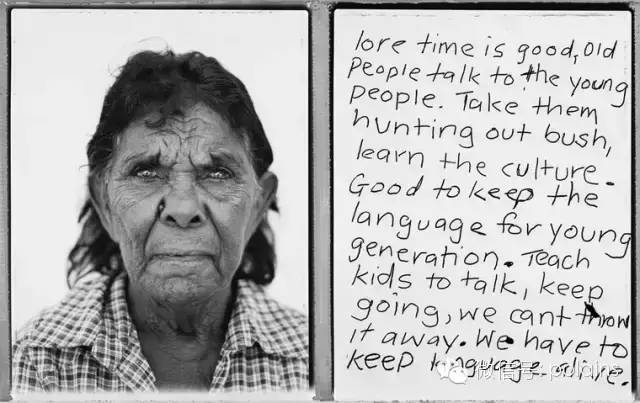 lore time is good, Old
People talk to the young
people. Take them
hunting out bush,
learn the culture.
Good to keep the
language for young
generation. Teach
kids to talk, keep
going, we cant throw
it away. We have to
keep language alive.
微信号: polains